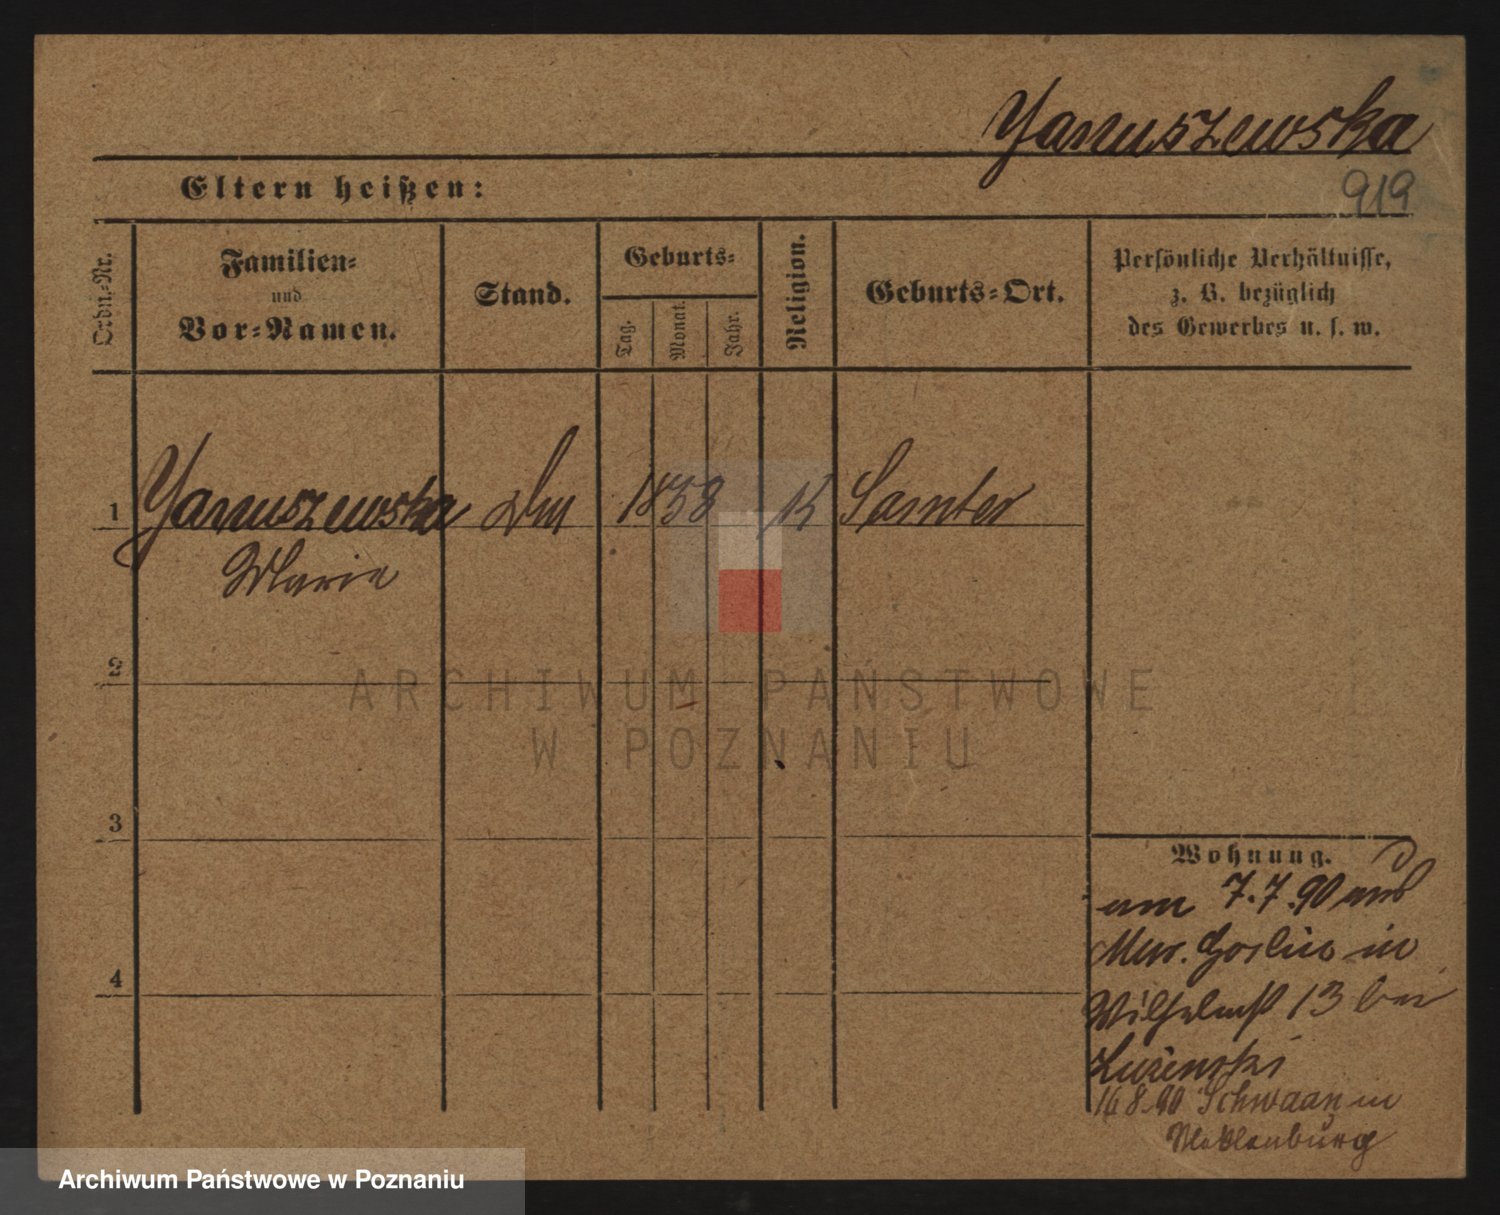 Januszewska
Eltern heißen:
919
Ordn.-Nr.
Familien-
und
Vor-Namen.
Stand.
Geburts-
Tag.
Monat.
Jahr.
Religion.
Geburts-Ort.
Persönliche Verhältnisse,
z. B. bezüglich
des Gewerbes u. s. w.
1 Januszewska 1858 K Samter
Marie
2
ARCHIWUM PAŃSTWOWE
W POZNANIU
3
Wohnung.
am 7.7.90 aus
Mur. Goslin in
4
Wilhelmst 13 bei
16 8.90 Schwaan in
Meklenburg
Archiwum Państwowe w Poznaniu